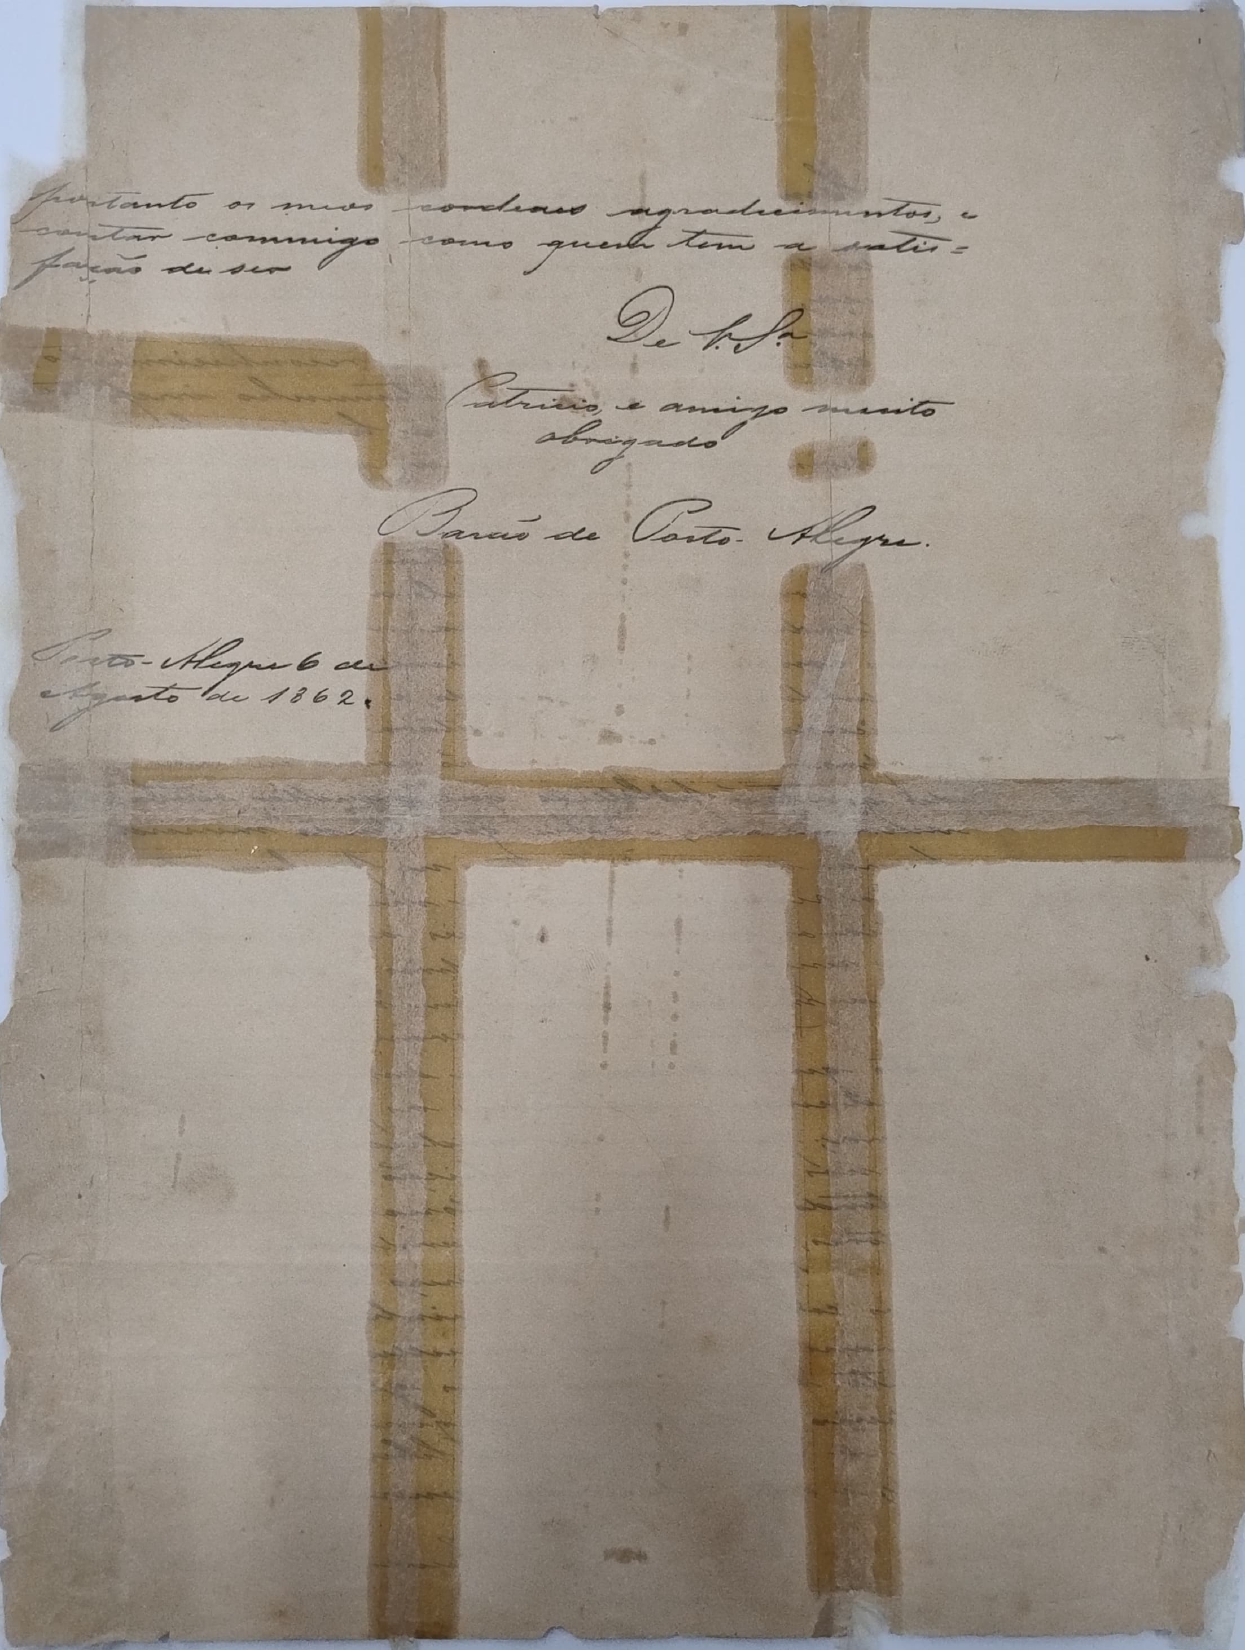 portanto os meos cordeaes agradecimentos, e
contar commigo como quem tem a satis=
fação de ser
De V. Sa
Patricio, e amigo muito
obrigado
Barão de Porto-Alegre.
Porto-Alegre 6 de
Agosto de 1862.